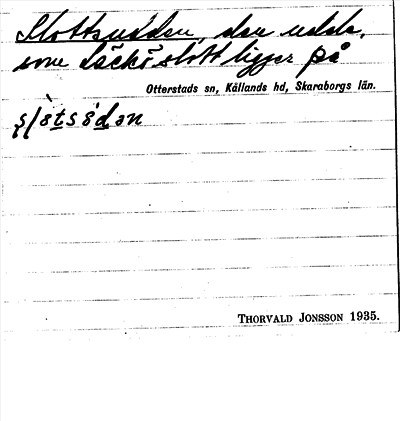 Slottsudden, den udde,
som Läckö slott ligger på
Otterstads sn, Kållands hd, Skaraborgs län.
THORVALD JONSSON 1935.